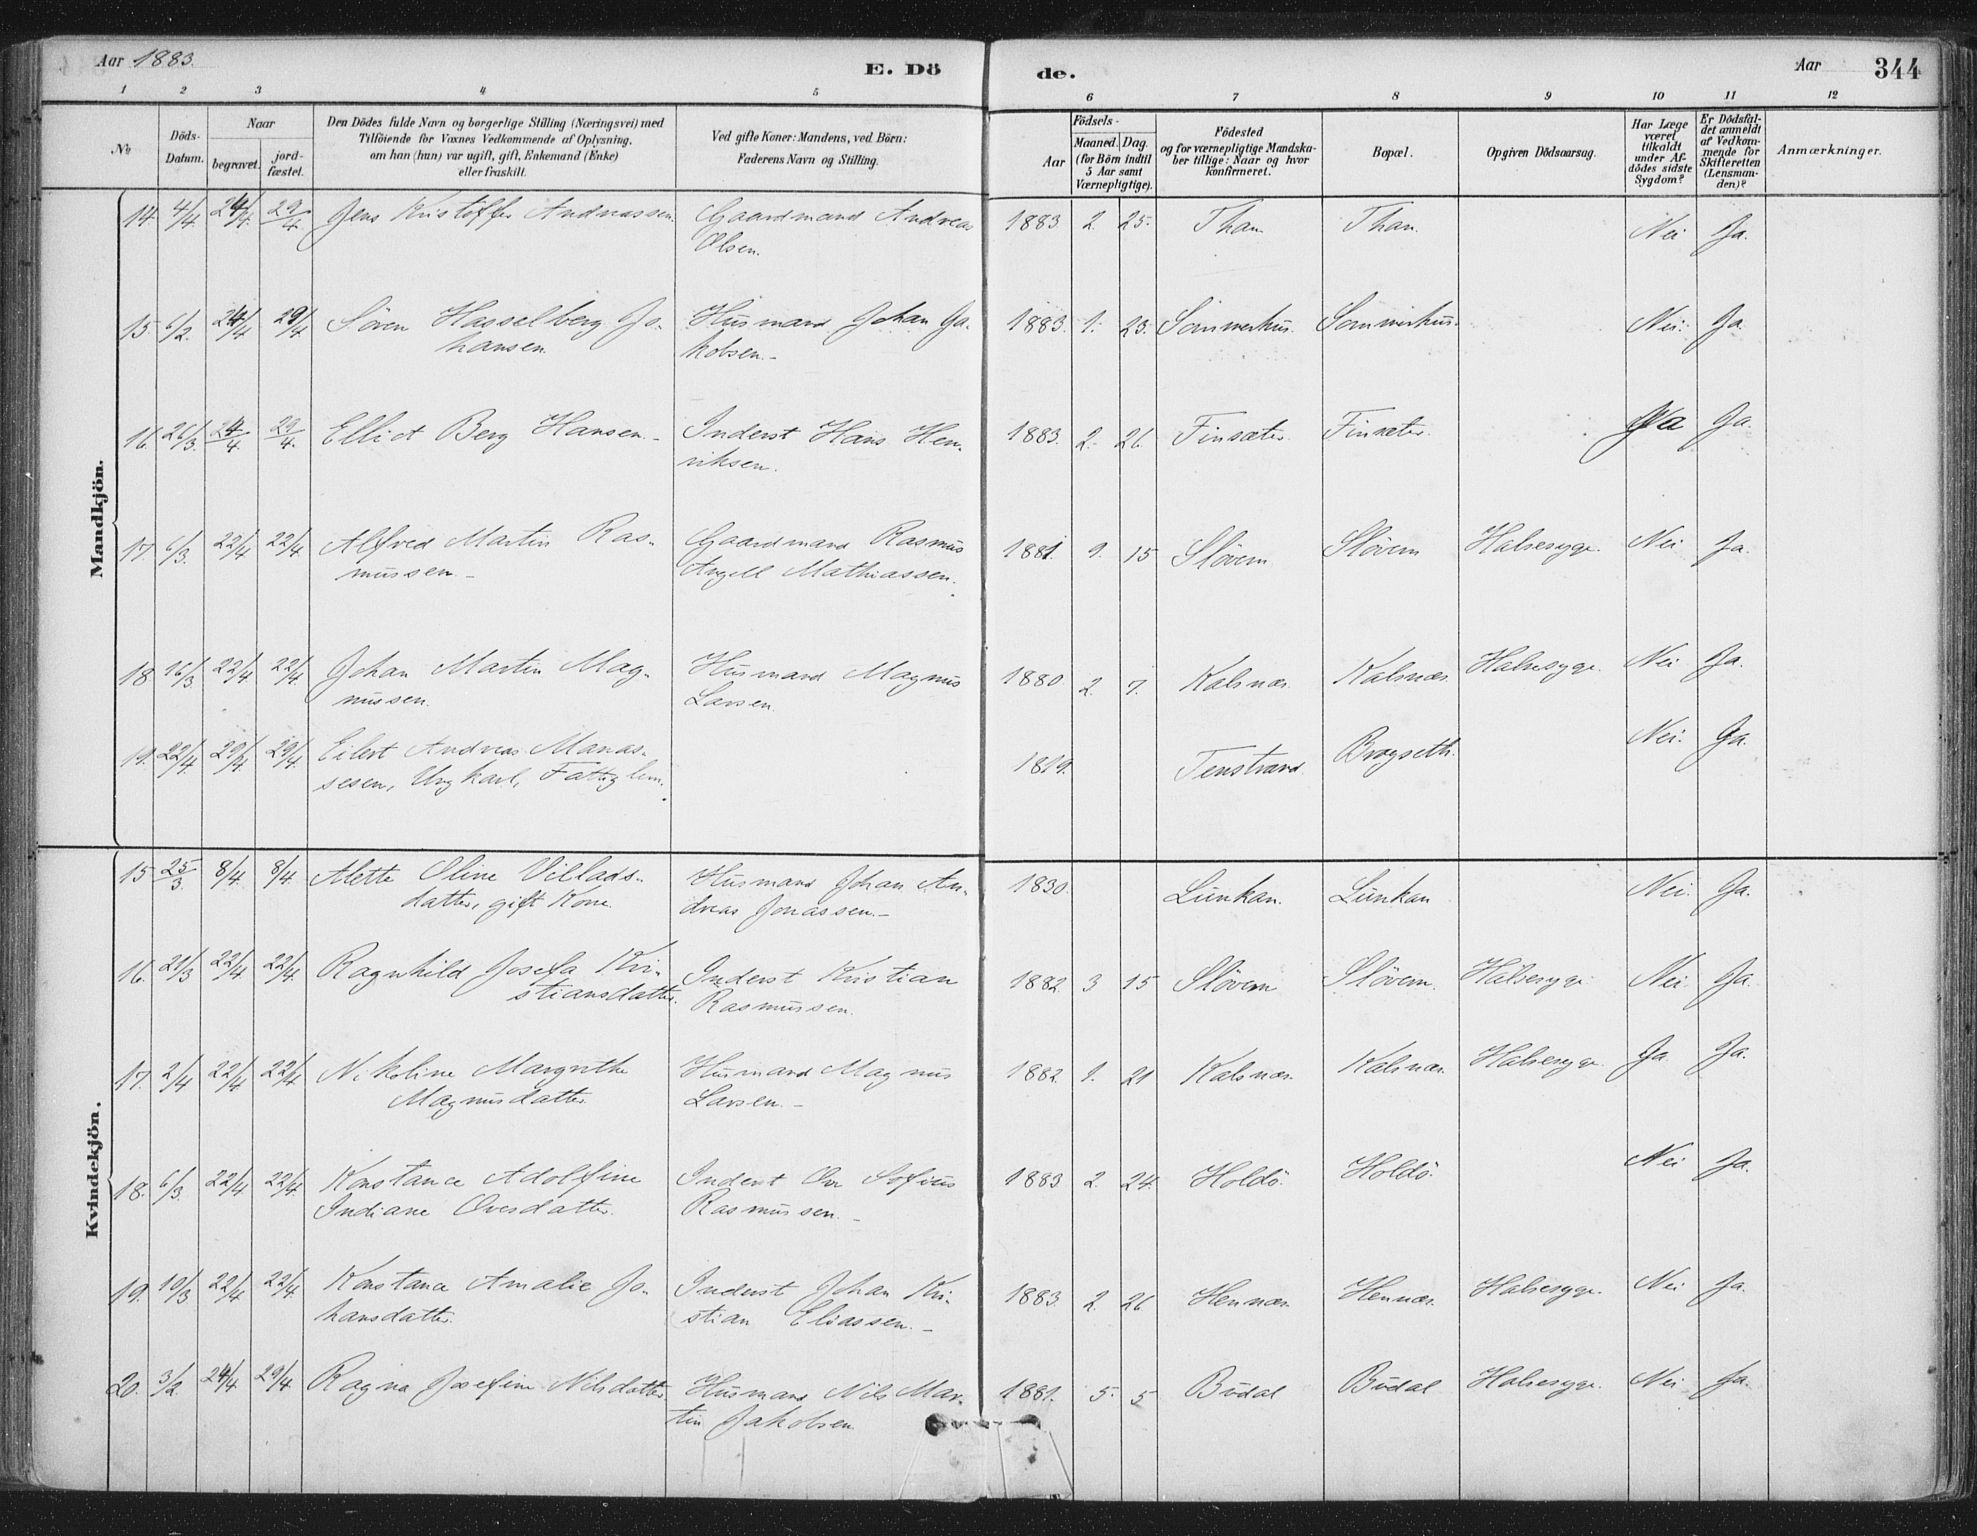 Aar 1883.
E. Dö
de.
Aar
344
1 2 3 4 5 6 7 8 9 10 11 12
No
Döds-
Datum.
Naar
begravet.
jord-
fæstet.
Den Dödes fulde Navn og borgerlige Stilling (Næringsvei) med
Tilföiende for Voxnes Vedkommende af Oplysning,
om han (hun) var ugift, gift, Enkemand (Enke)
eller fraskilt.
Ved gifte Koner: Mandens, ved Börn:
Faderens Navn og Stilling.
Födsels-
Aar
Maaned.
Dag.
(for Börn indtil
5 Aar samt
Værnepligtige).
Födested
og for værnepligtige Mandska-
ber tillige: Naar og hvor
konfirmeret.
Bopæl.
Opgiven Dödsaarsag.
Har Læge
været
tilkaldt
under Af-
dödes sidste
Sygdom?
Er Dödsfal-
det anmeldt
af Vedkom-
mende for
Skifteretten
(Lensman-
den)?
Anmærkninger.
Mandkjön.
14. 4/4. 24/4. 29/4 Jens Kristoffer Andreassen. Gaardmand Andreas 1883. 2. 25. Than. Than. Nei Ja.
Olsen.
15. 6/2. 24/4 29/4 Sören Hasselberg Jo- Husmand Johan Ja- 1883. 1. 23. Sommerhus. Sommerhus. Nei. Ja.
hansen. kobsen.-
16. 26/3. 24/4. 29/4. Elliot Berg Hansen.- Inderst Hans Hen- 1883. 2. 26. Finsæter. Finsæter. Ja Ja.
riksen.
17. 6/3. 22/4 22/4. Alfred Martin Ras- Gaardmand Rasmus 1881. 9. 15 Slövern Slövern Halsesyge. Nei Ja.
mussen - Angell Mathiassen.
18. 16/3. 22/4 22/4. Johan Martin Mag- Husmand Magnus 1880. 2. 7. Kalsnæs. Kalsnæs. Halsesyge. Nei Ja.
nussen. Larsen.
19. 22/4. 29/4. 29/4. Eilert Andreas Manas- 1819. Tenstrand. Brogseth. Nei. Ja.
sesen, Ungkarl, Fattiglem.
Kvindekjön.
15. 25/3. 8/4. 8/4. Alette Oline Villads- Husmand Johan An- 1830. Lunkan. Lunkan Nei. Ja.
datter, gift Kone. dreas Jonassen.-
16. 21/3 22/4 22/4. Ragnhild Josefa Kri- Inderst Kristian 1882. 3 15 Slövern Slövern. Halsesyge Nei. Ja.
stiansdatter. Rasmussen.
17. 2/4 22/4 22/4 Nikoline Margrethe Husmand Magnus 1882. 1. 21 Kalsnæs. Kalsnæs. Halsesyge. Ja Ja.
Magnusdatter. Larsen.-
18. 6/3. 22/4 22/4. Konstance Adolfine Inderst Ove Sofius 1883. 2. 24. Holdö. Holdö. Nei Ja.
Indiane Ovesdatter. Rasmussen.-
19. 10/3 22/4 22/4. Konstance Amalie Jo- Inderst Johan Kri- 1883. 2. 26 Hennæs. Hennæs. Halsesyge. Nei Ja.
hansdatter. stian Eliassen.-
20. 3/2. 24/4 29/4. Ragna Josefine Nilsdatter. Husmand Nils Mar- 1881. 5. 5 Budal Budal Halsesyge. Nei Ja.
tin Jakobsen